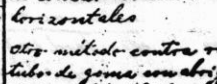 horizontales
otro método contra
tubos de goma con